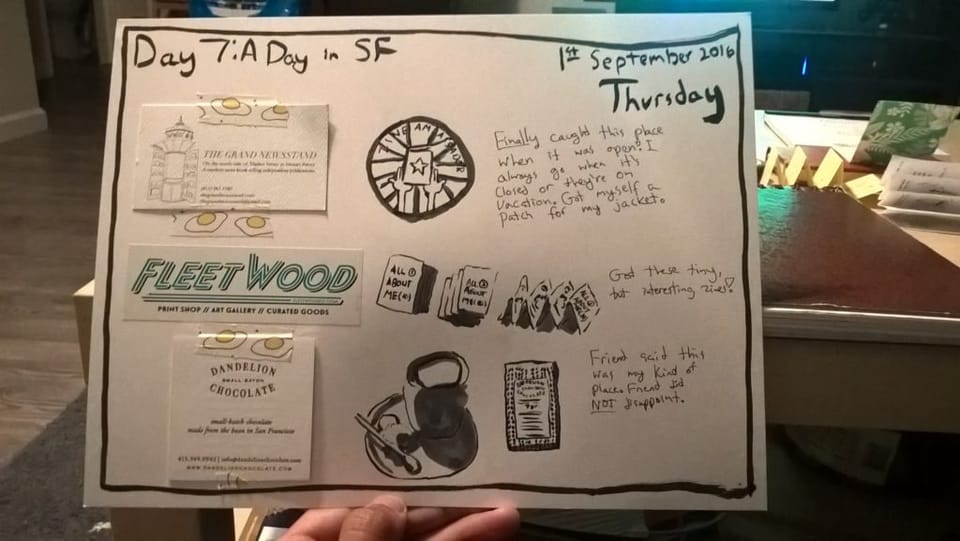 Day 7: A Day in SF
1st September 2016
Thursday
THE GRAND NEWSSTAND
Finally caught this place
when it was open! I
always go when it's
closed or they're on
vacation. Got myself a
patch for my jacket.
FLEETWOOD
PRINT SHOP // ART GALLERY // CURATED GOODS
ALL
ABOUT
ME
ALL
ABOUT
ME
Got these tiny,
but interesting zines!
DANDELION
SMALL-BATCH
CHOCOLATE
small-batch chocolate
made from the bean in San Francisco
415.349.0942 | info@dandelionchocolate.com
WWW.DANDELIONCHOCOLATE.COM
Friend said this
was my kind of
place. Friend did
NOT disappoint.